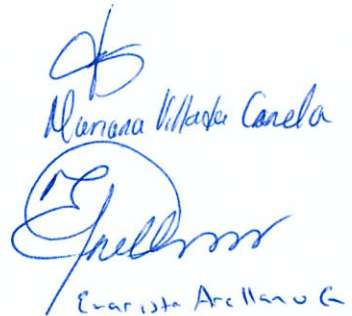 Mariana Villada Canela
Evarista Arellano G